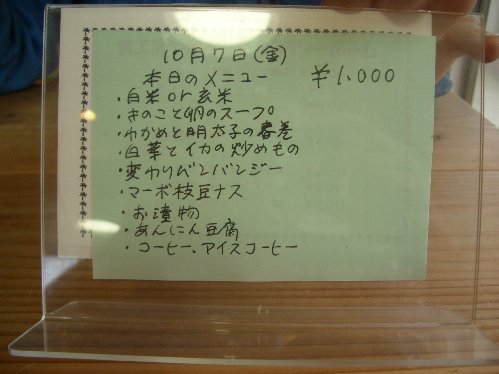 10月7日(金)
本日のメニュー ¥1,000
・白米or玄米
・きのこと卵のスープ
・わかめと明太子の春巻
・白菜とイカの炒めもの
・変わりバンバンジー
・マーボ枝豆ナス
・お漬物
・あんにん豆腐
・コーヒー、アイスコーヒー